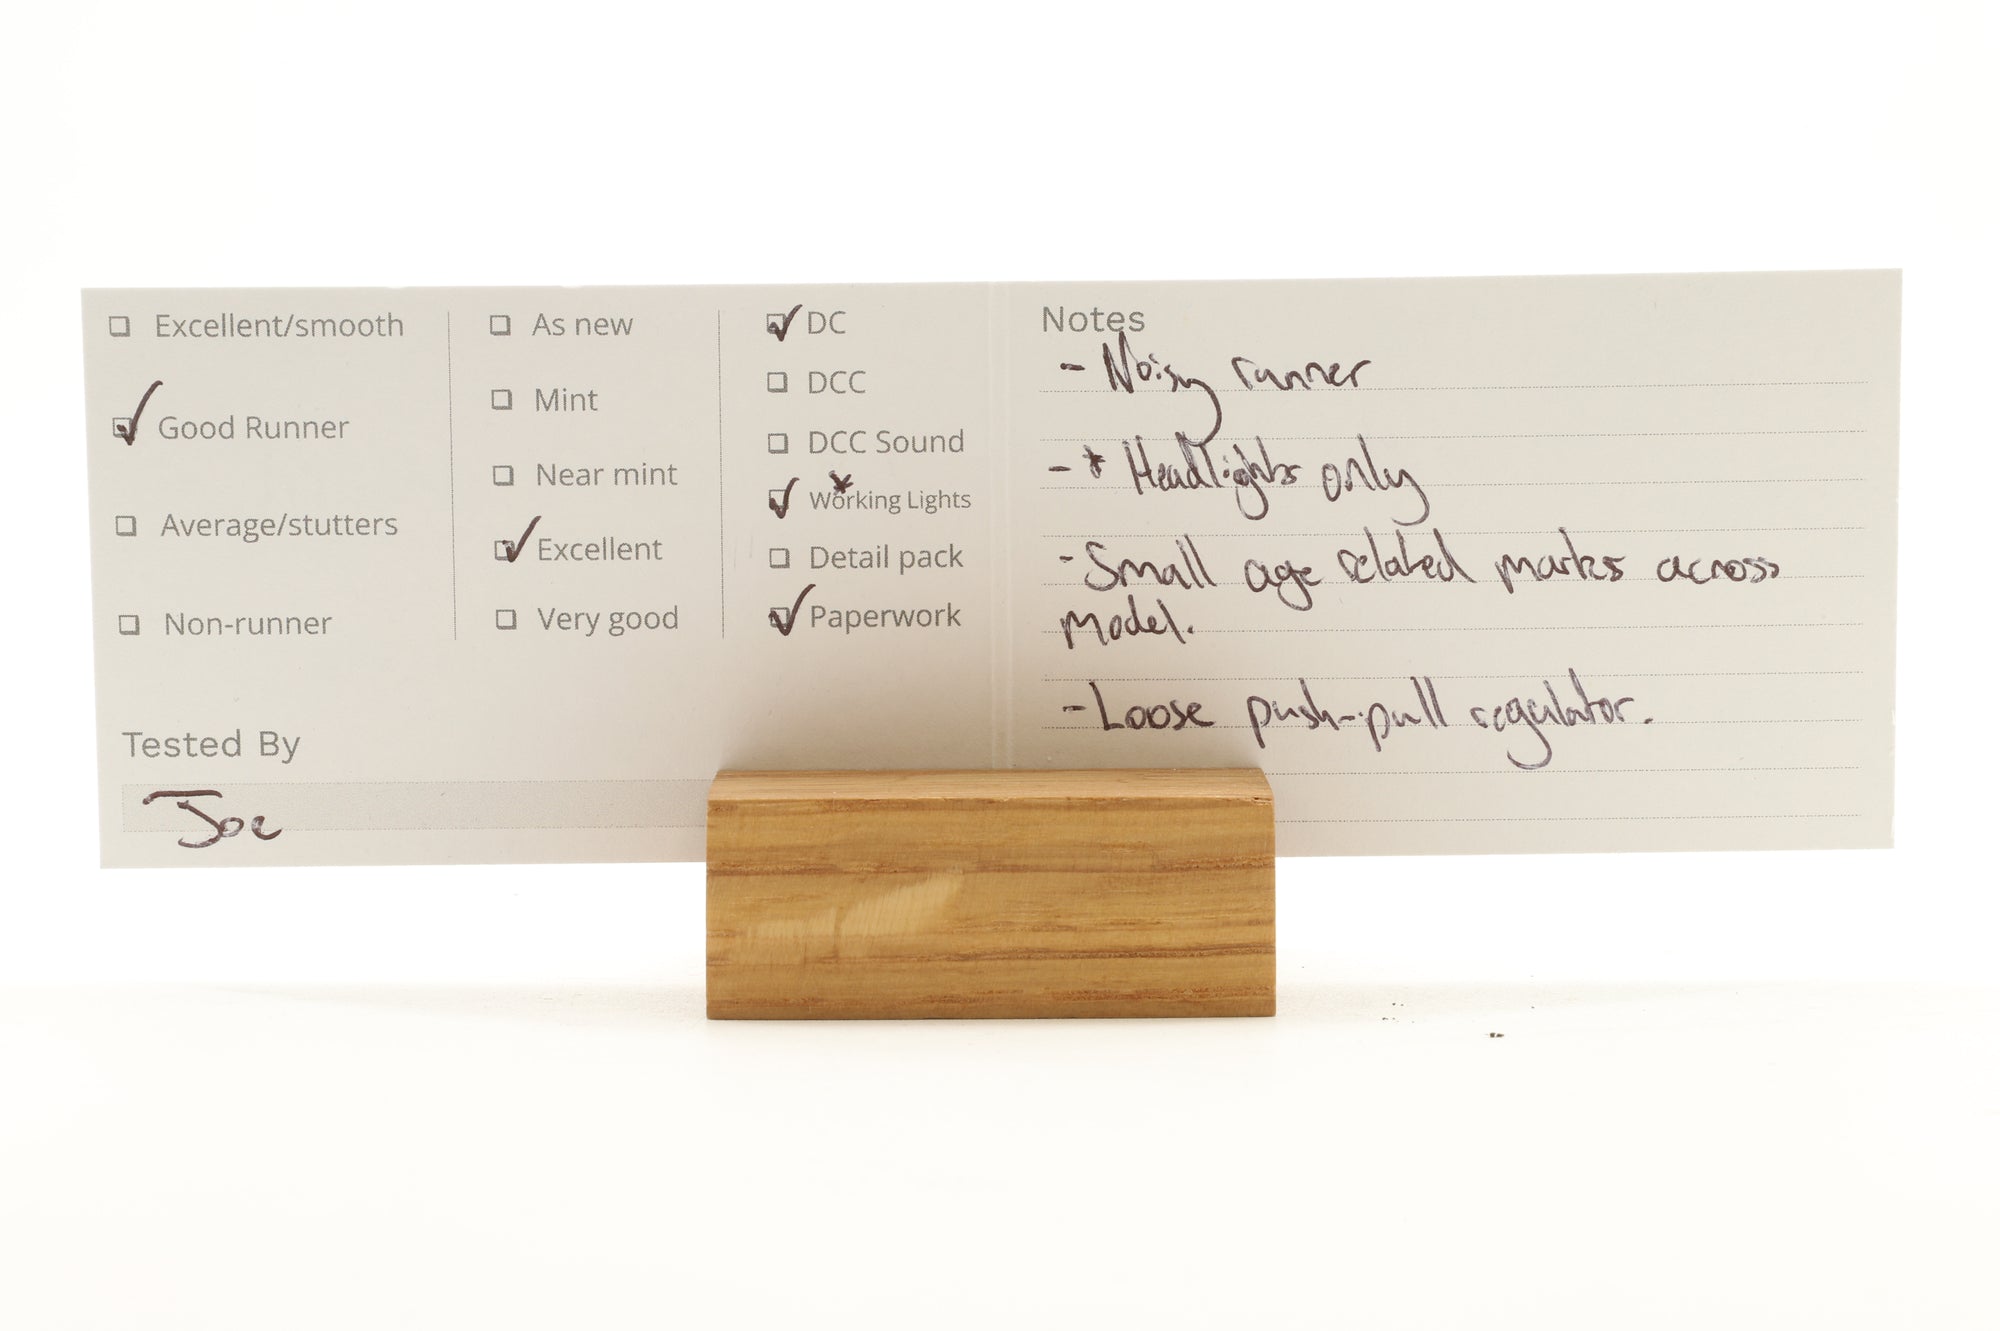 Excellent/smooth
Good Runner
Average/stutters
Non-runner
As new
Mint
Near mint
Excellent
Very good
DC
DCC
DCC Sound
*
Working Lights
Detail pack
Paperwork
Tested By
Joe
Notes
- Noisy runner
- * Headlights only
- Small age related marks across
model.
- Loose push-pull regulator.